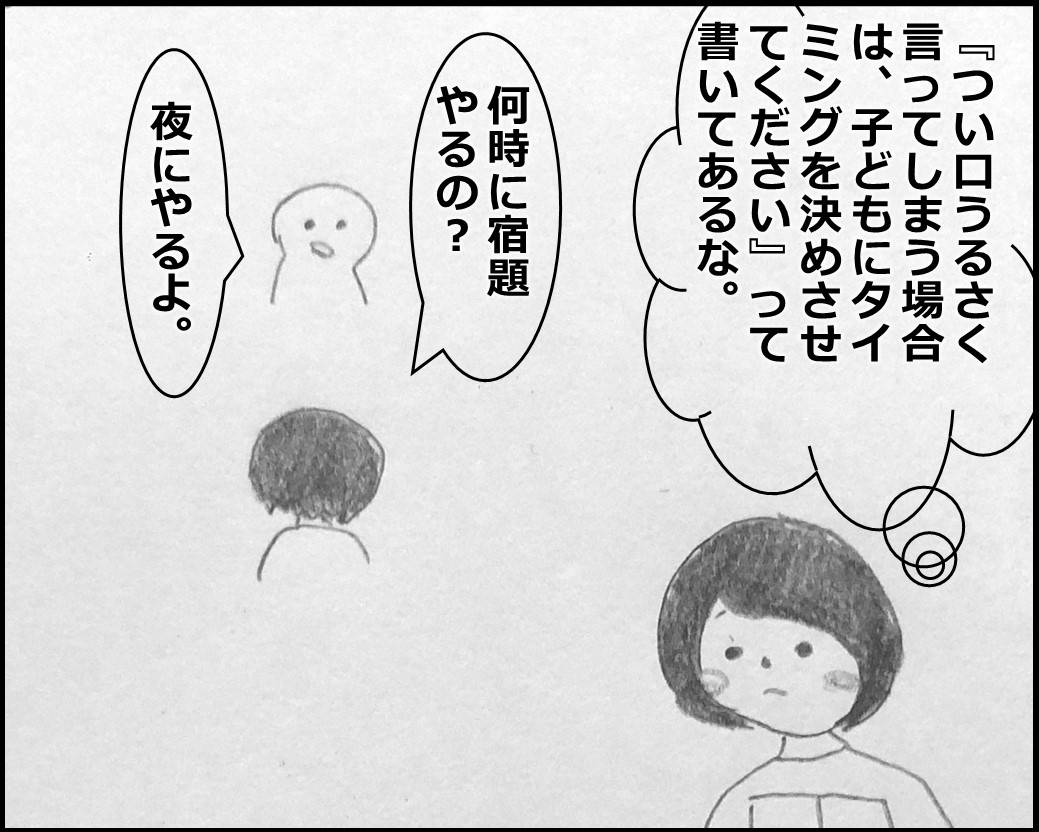 『つい口うるさく
言ってしまう場合
は、子どもにタイ
ミングを決めさせ
てください』って
書いてあるな。
何時に宿題
やるの？
夜にやるよ。